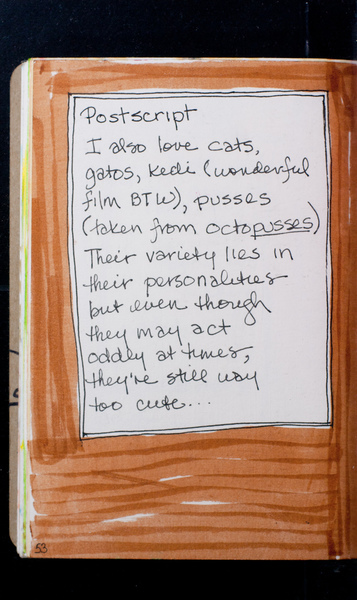 Postscript
I also love cats,
gatos, kedi (wonderful
film BTW), pusses
(taken from octopusses)
Their variety lies in
their personalities
but even though
they may act
oddly at times,
they're still way
too cute...
53